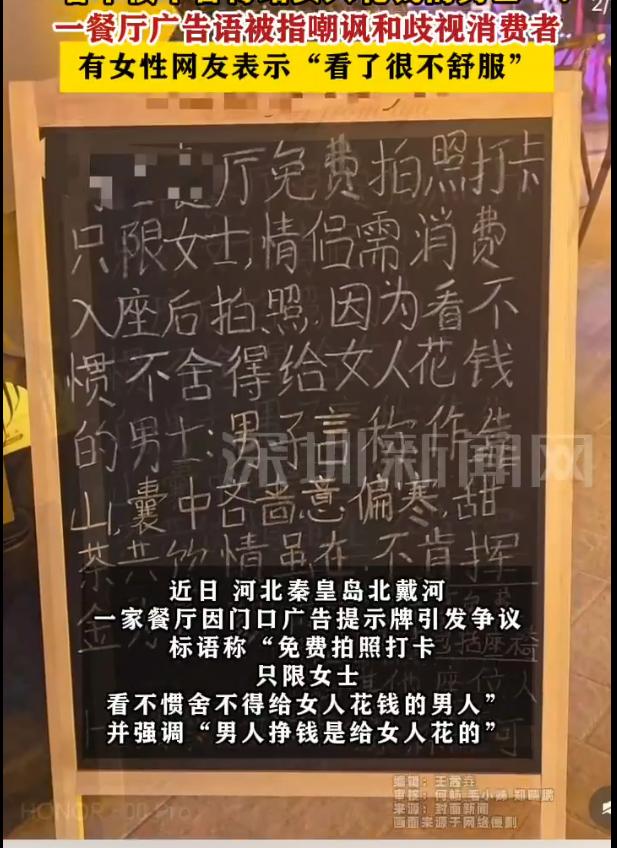 一餐厅广告语被指嘲讽和歧视消费者
有女性网友表示“看了很不舒服”
厅免费拍照打卡
只限女士,情侣需消费
入座后拍照.因为看不
惯不舍得给女人花钱
的男士:男子言称作靠
山,囊中吝啬意偏寒,甜
茶共饮情虽在,不肯挥
金
深圳新闻网
近日 河北秦皇岛北戴河
一家餐厅因门口广告提示牌引发争议
标语称“免费拍照打卡
只限女士
看不惯舍不得给女人花钱的男人”
并强调“男人挣钱是给女人花的”
包括座椅
座位人
可
编辑：王茜垚
来源：封面新闻
画面来源于网络侵删
HONOR
00 Pro
2/